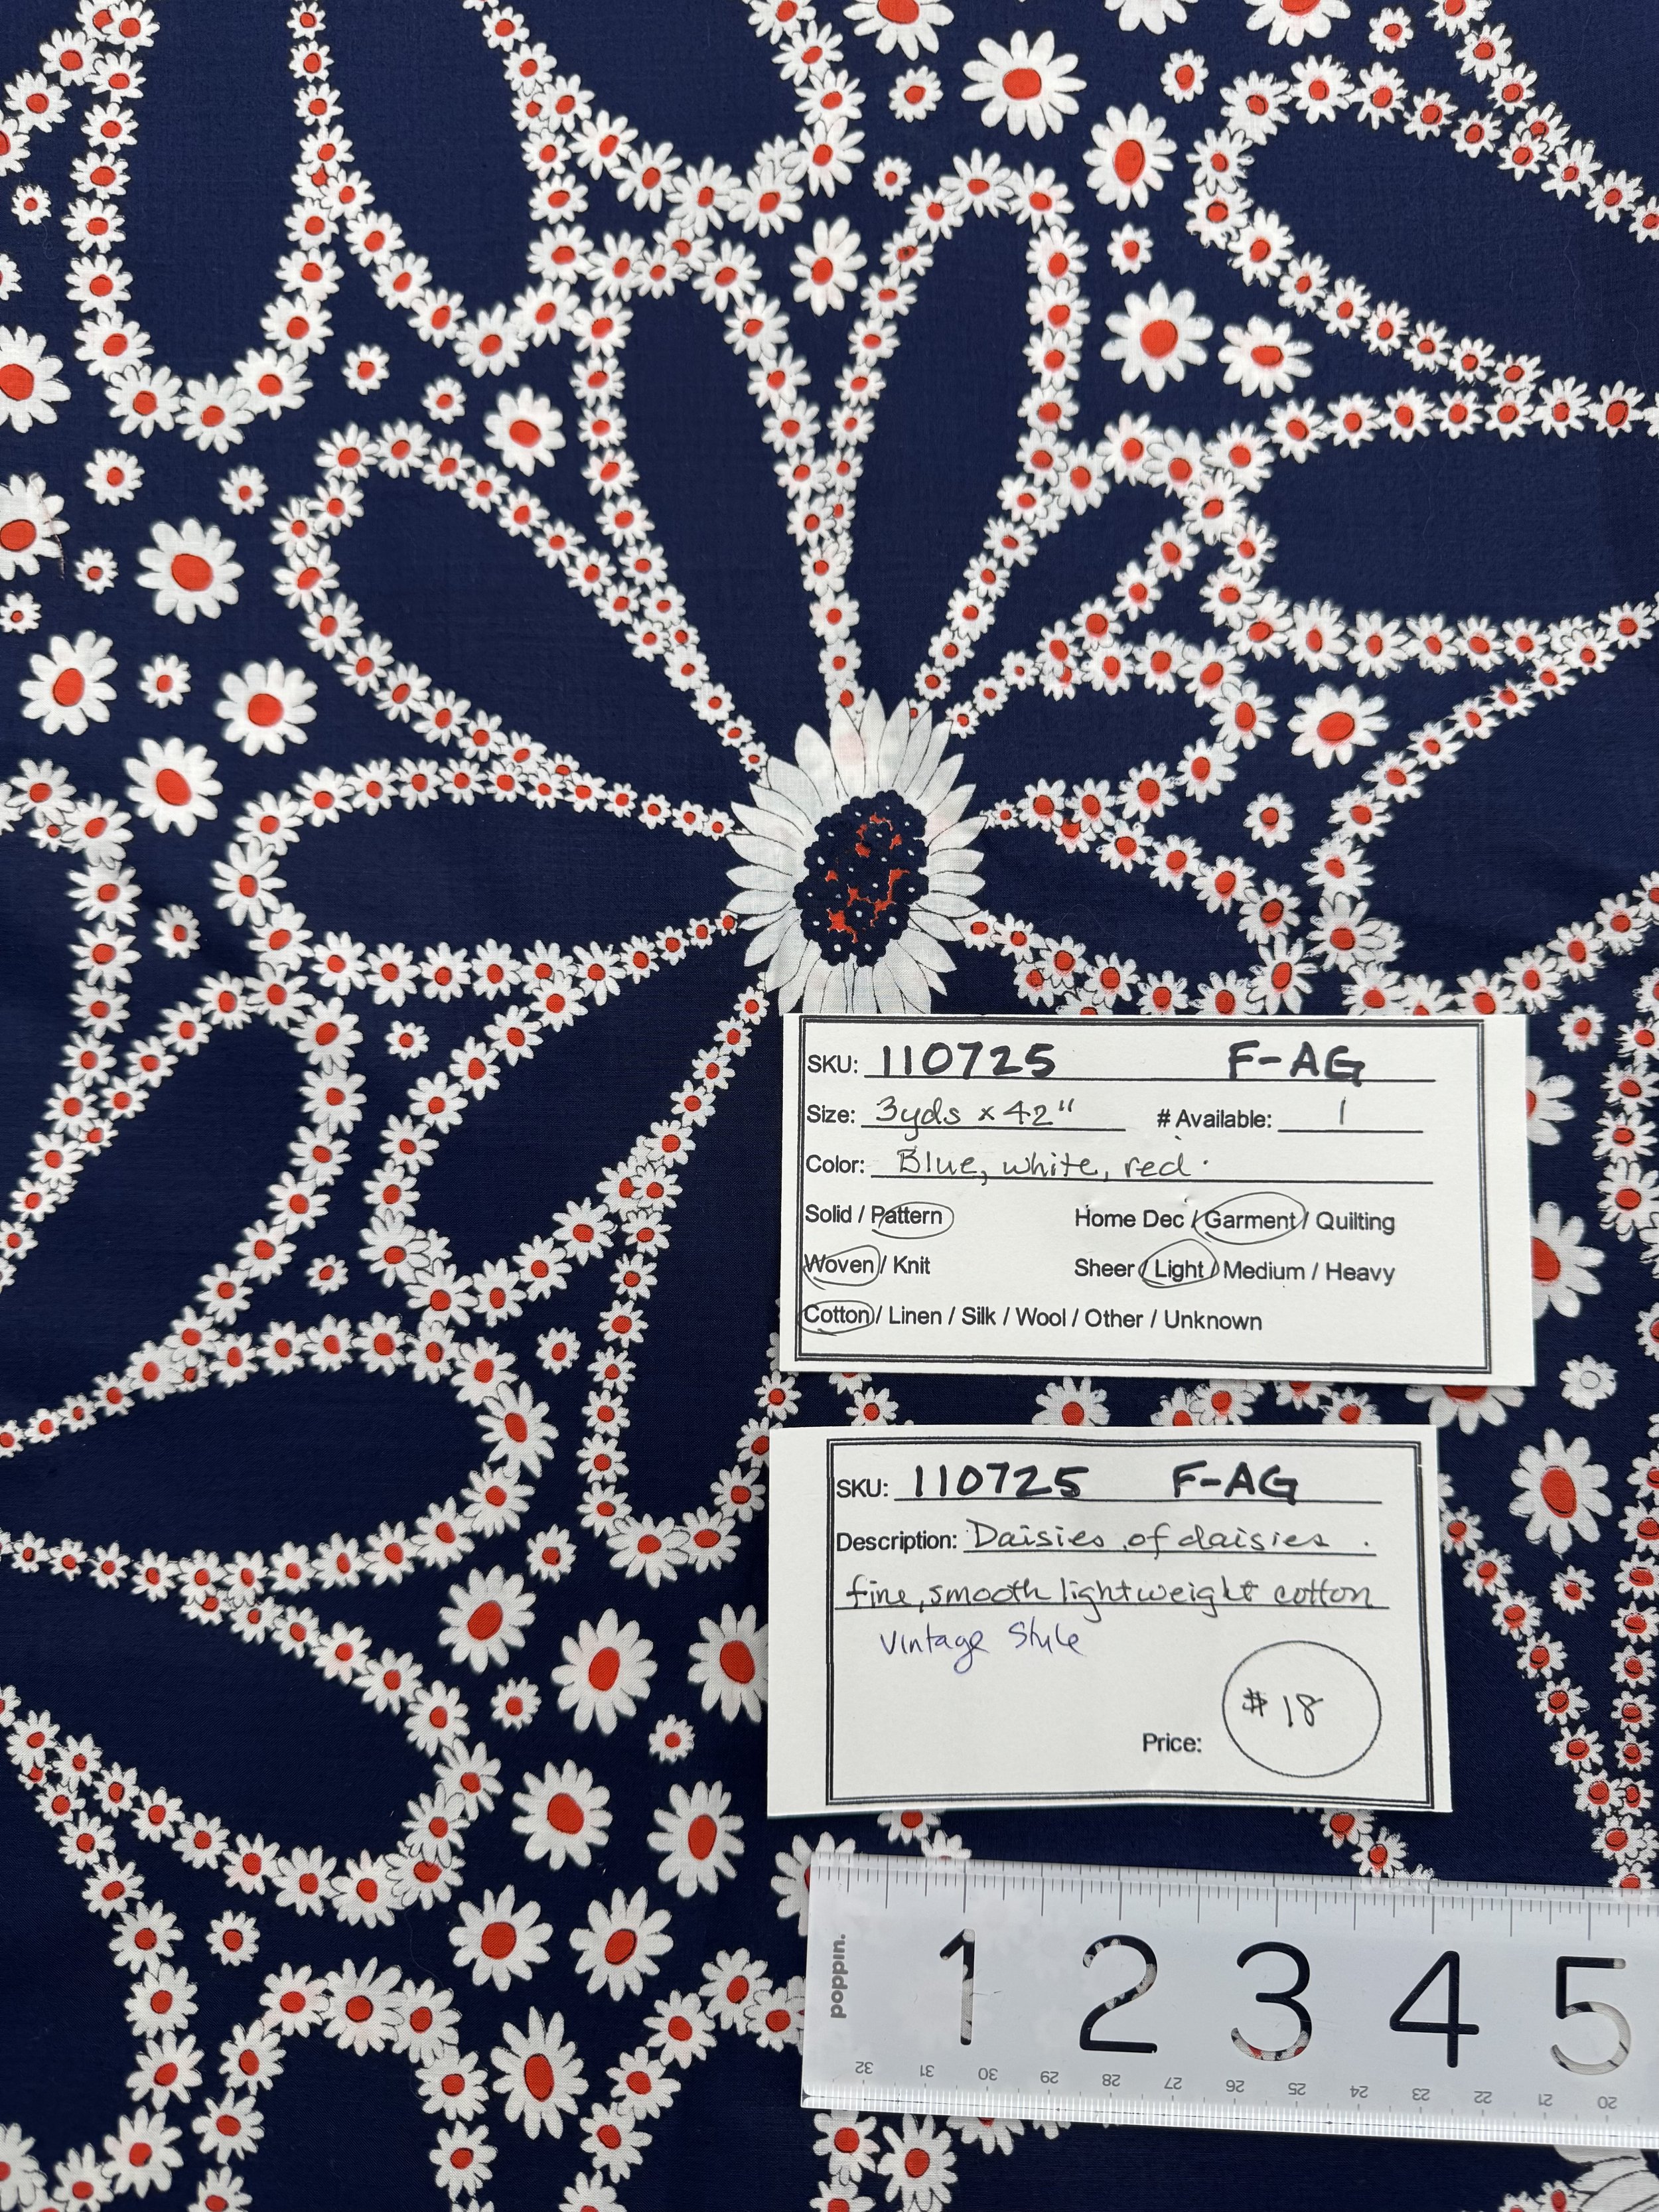 SKU: 110725 F-AG
Size: 3yds x 42" # Available: 1
Color: Blue, white, red.
Solid / Pattern Home Dec / Garment / Quilting
Woven / Knit Sheer / Light / Medium / Heavy
Cotton / Linen / Silk / Wool / Other / Unknown
SKU: 110725 F-AG
Description: Daisies of daisies.
fine, smooth lightweight cotton
Vintage Style
Price: $18
poppin.
1 2 3 4 5
32 31 30 29 28 27 26 25 24 23 22 21 20